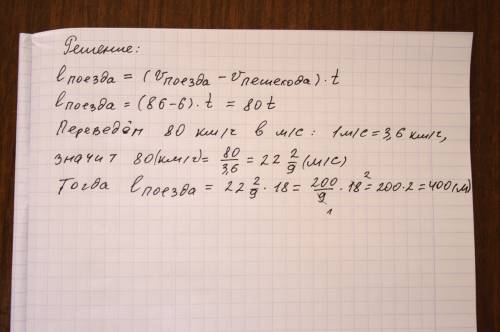 Решение:
lпоезда = (vпоезда − vпешехода) · t
lпоезда = (86−6) · t = 80t
Переведём 80 км/ч в м/с: 1м/с = 3,6 км/ч,
значит 80(км/ч) = 80/3,6 = 22 2/9 (м/с)
Тогда lпоезда = 22 2/9 · 18 = 200/9 · 18 = 200·2 = 400(м)